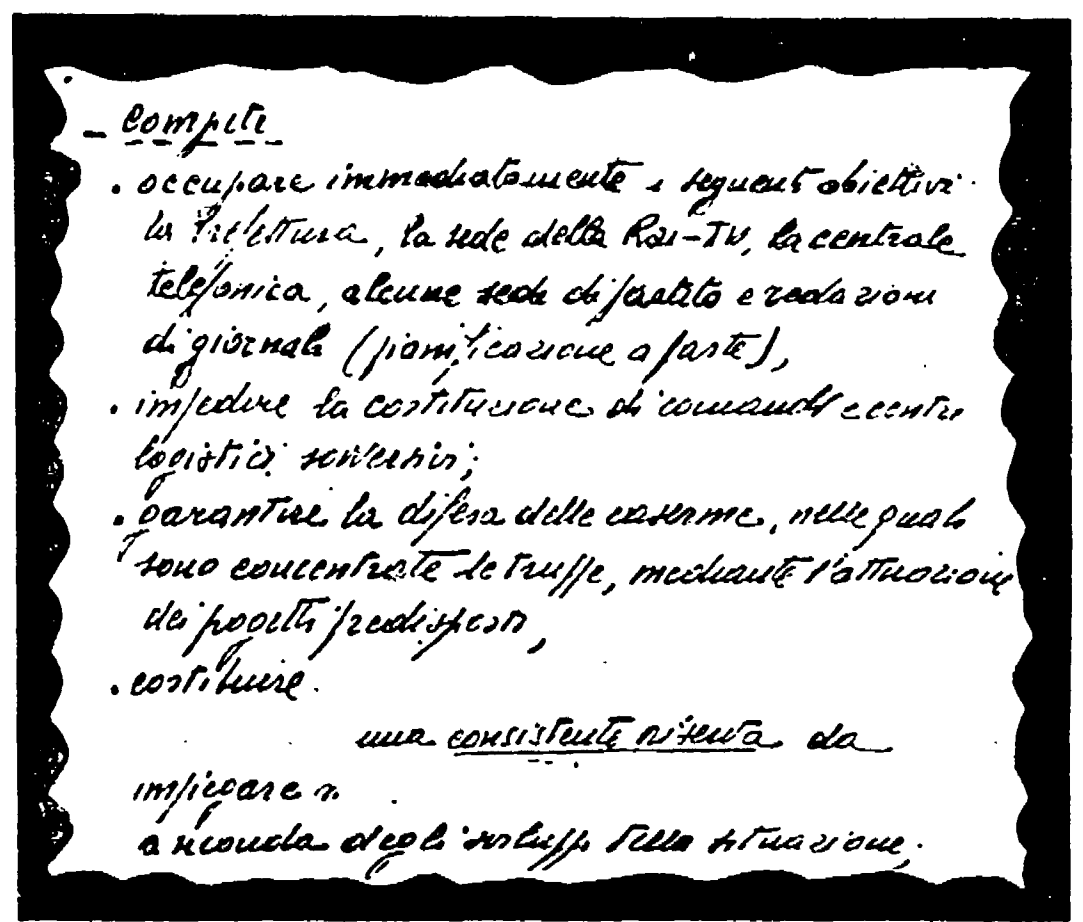 - Compiti
. occupare immediatamente i seguenti obiettivi:
la Prefettura, la sede della Rai-TV, la centrale
telefonica, alcune sedi di partito e redazioni
di giornali (pianificazione a parte),
. impedire la costituzione di comandi e centri
logistici sovversivi;
. garantire la difesa delle caserme, nelle quali
sono concentrate le truppe, mediante l'attuazione
dei progetti predisposti,
. costituire
una consistente riserva da
impiegare
a seconda degli sviluppi della situazione;